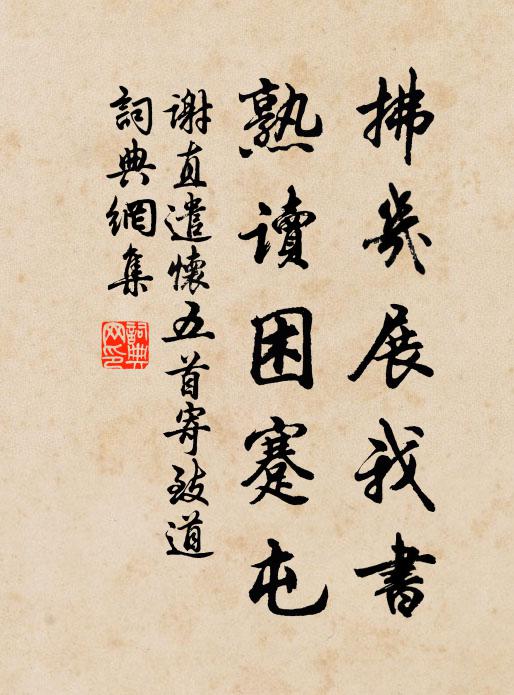 拂幾展我書
熟讀困蹇屯
謝直遣懷五首寄致道
詞典網集
詞典
网印